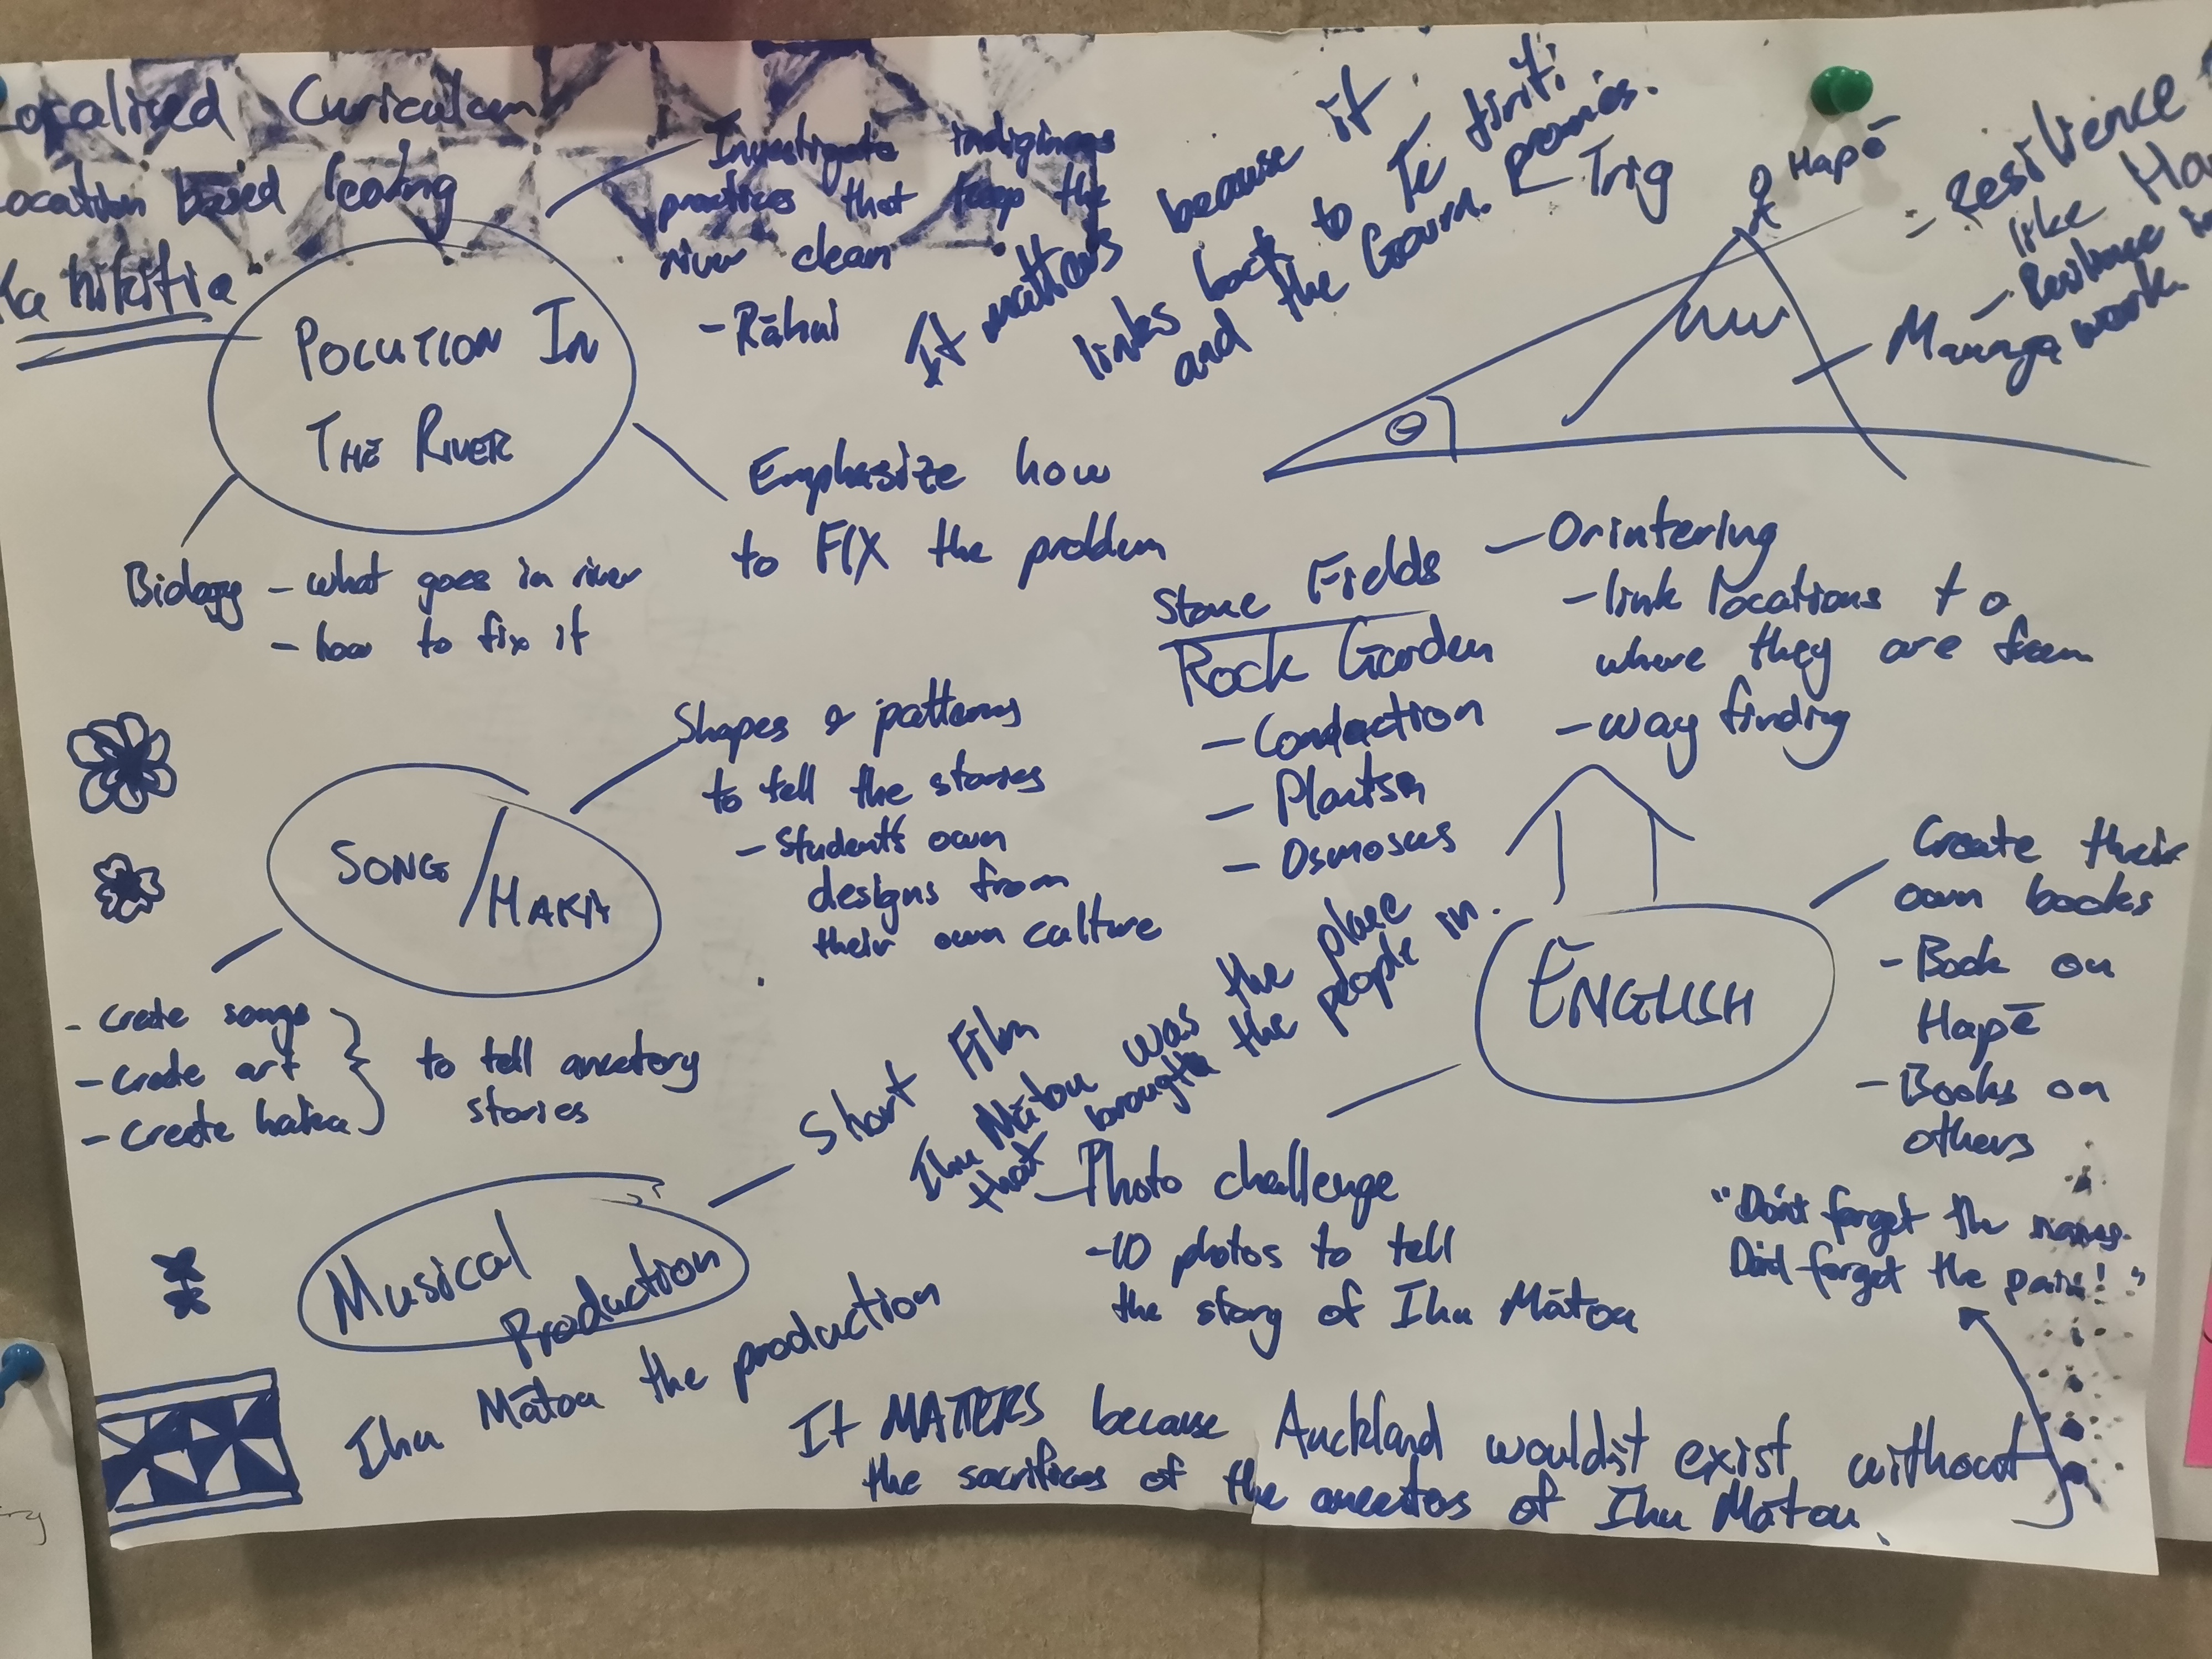 Localised Curiculam
Location based leaing
"Ka hikitia"
POLUTION IN
THE RIVER
Investigate indiginous
practices that keep the
river clean
- Rāhui
Emphasize how
to FIX the problem
Biology - what goes in river
- how to fix it
It matters because it
links back to Te tiriti
and the Govrn. promies.
Trig
Hapē
- Resilience
like
- Resiliance in
work.
Maunga
Stone Fields
Rock Garden
- Conduction
- Plants
- Osmosus
- Orintering
- link locations to
where they are from
- way finding
SONG / HAKA
Shapes & patterns
to tell the stories
- Students own
designs from
their own culture
- Create songs
- Create art
- Create haka
to tell ancetory
stories
ENGLISH
Create their
own books
- Book on
Hapē
- Books on
others
- Photo challenge
- 10 photos to tell
the story of Ihu Mātou
Musical
Production
Short Film
Ihu Mātou was the place
that brought the people in.
Ihu Mātou the production
"Don't forget the names.
Don't forget the pain!"
It MATTERS because Auckland wouldn't exist without
the sacrifices of the ancestors of Ihu Mātou.